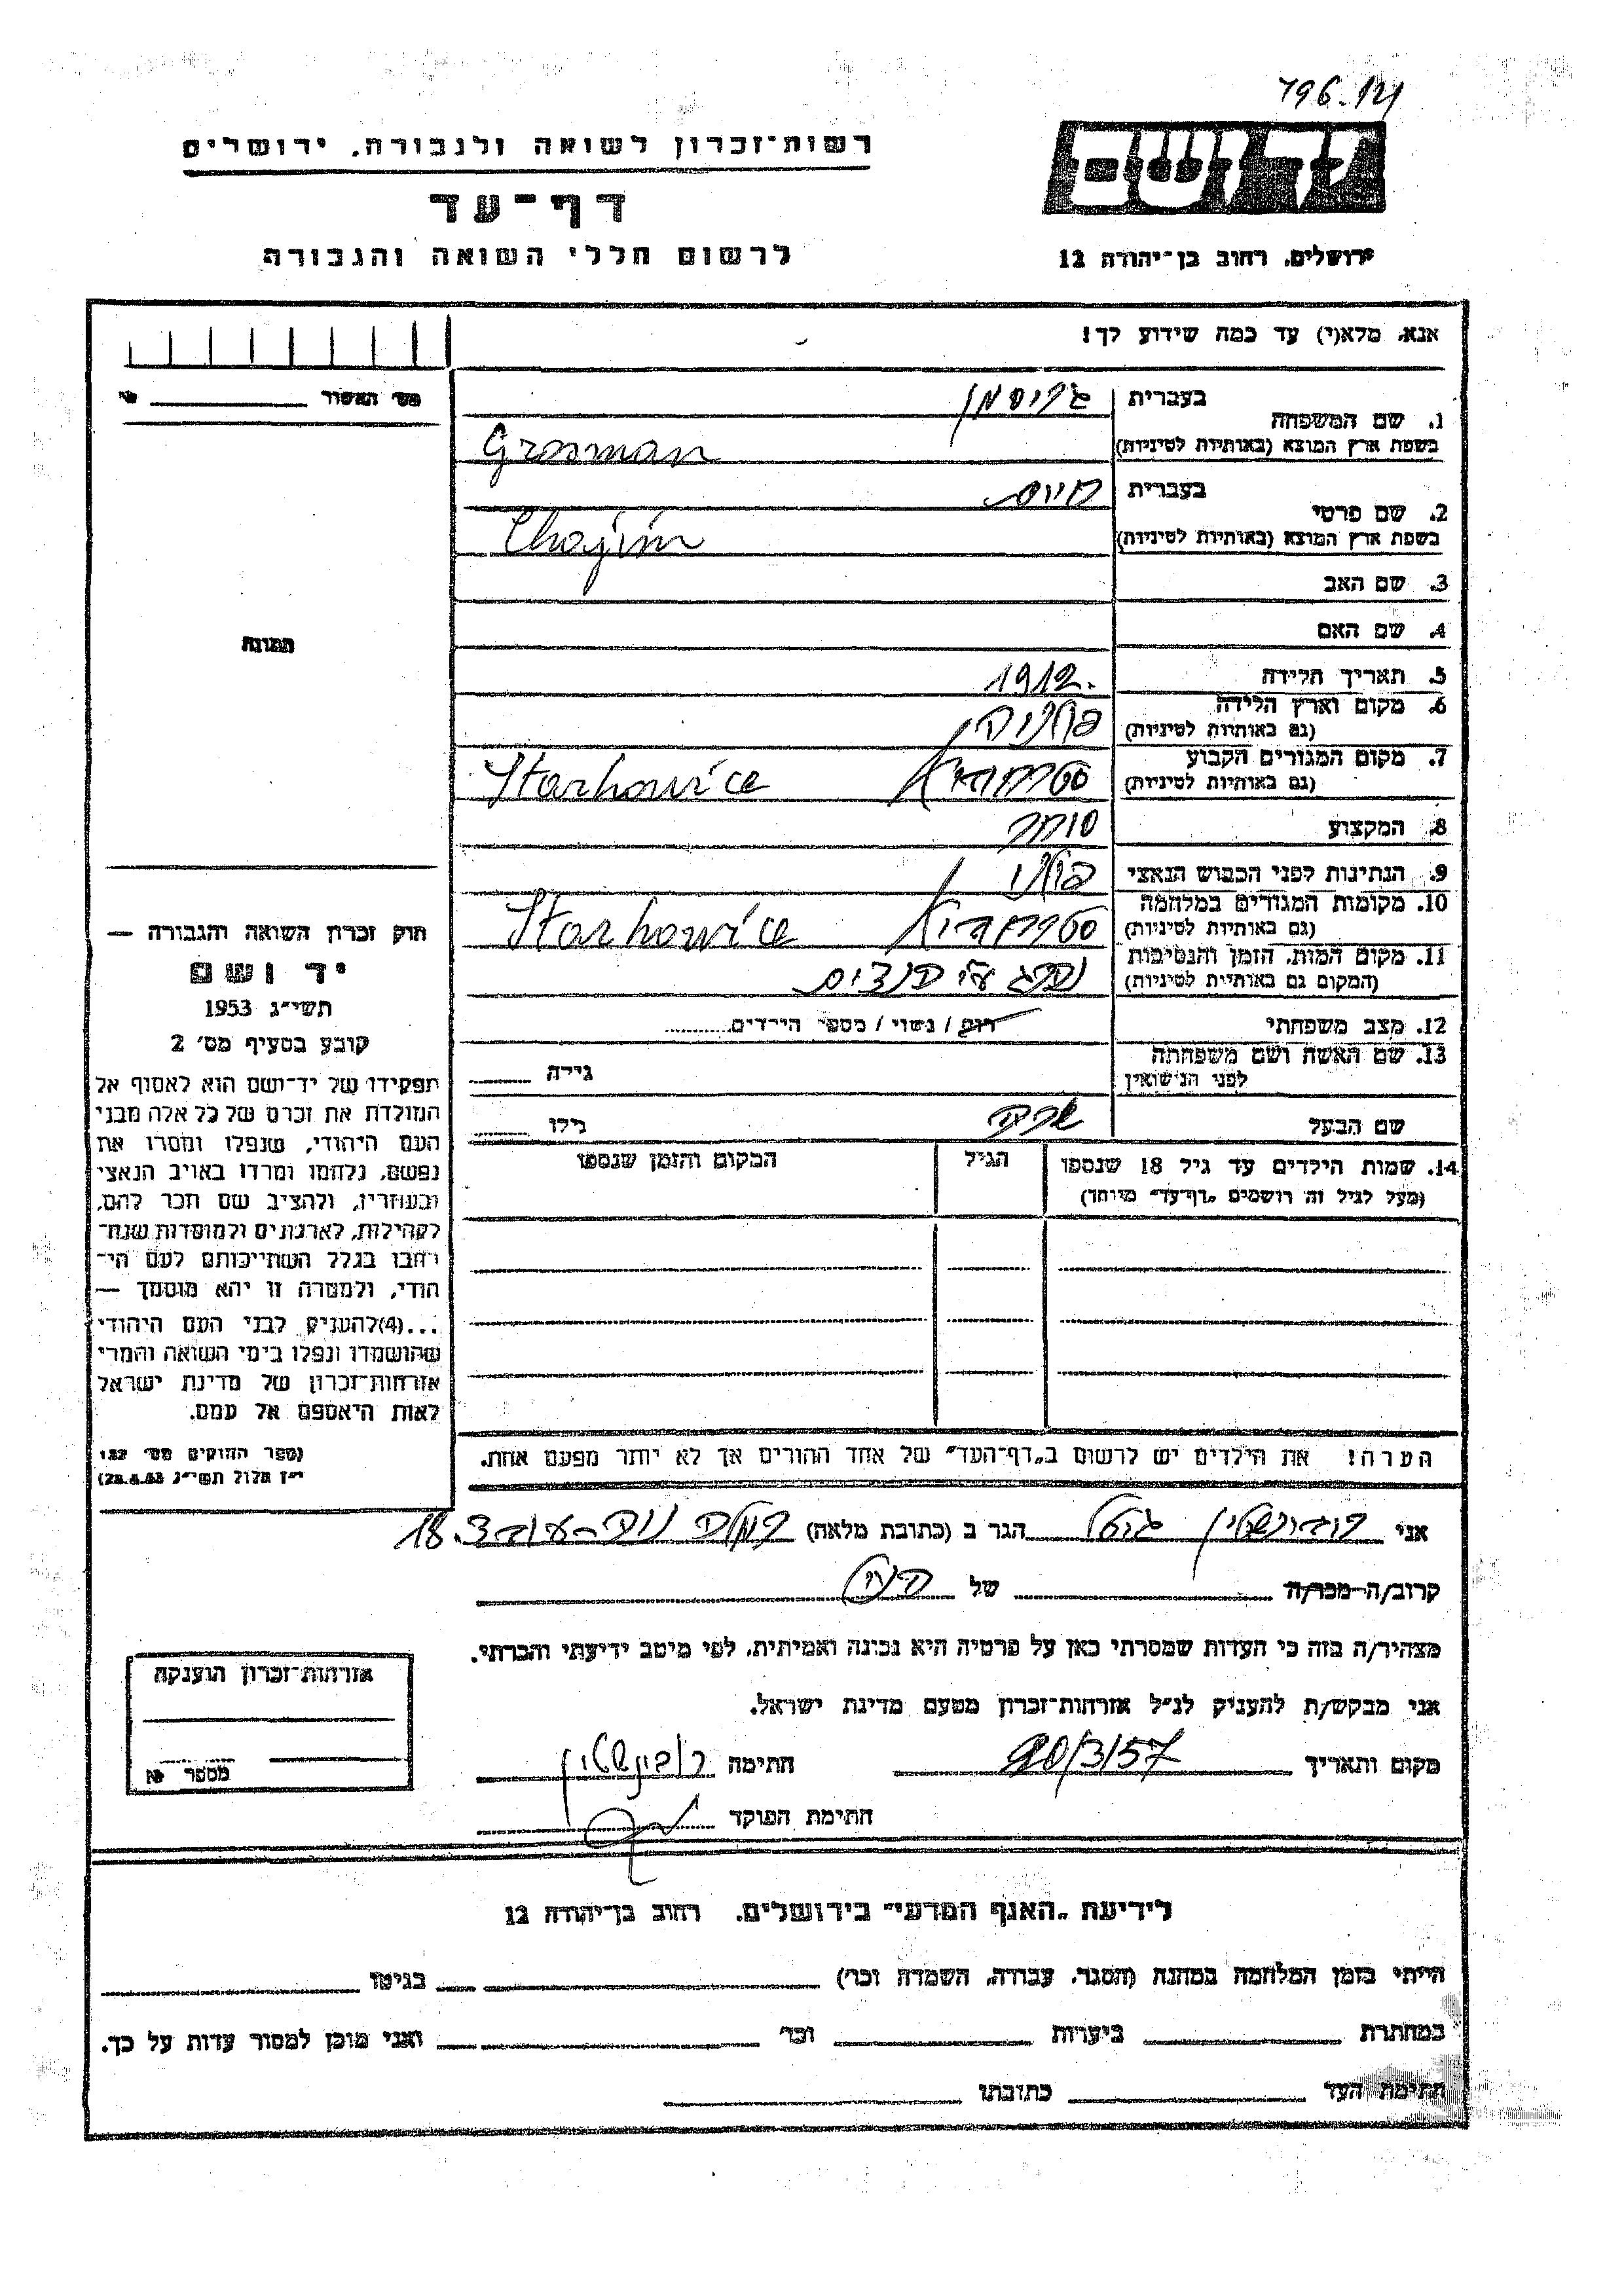 796.121
רשות־זכרון לשואה ולגבורה. ירושלים
דף־עד
לרשום חללי השואה והגבורה
ידושם
ירושלים. רחוב בן־יהודה 12
אנא, מלא(י) עד כמה שידוע לך!
מס' האשור №
1. שם המשפחה
בעברית גרוסמן
בשפת ארץ המוצא (באותיות לטיניות) Grosman
2. שם פרטי
בעברית חיים
בשפת ארץ המוצא (באותיות לטיניות) Chajim
3. שם האב
4. שם האם
5. תאריך הלידה 1912.
6. מקום וארץ הלידה
(גם באותיות לטיניות)
7. מקום המגורים הקבוע Starhowice
(גם באותיות לטיניות)
8. המקצוע סוחר
9. הנתינות לפני הכבוש הנאצי פולני
10. מקומות המגורים במלחמה Starhowice
(גם באותיות לטיניות)
11. מקום המות, הזמן והנסיבות נהרג ע"י הנאצים
(המקום גם באותיות לטיניות)
12. מצב משפחתי רוק / נשוי / מספר הילדים
13. שם האשה ושם משפחתה
לפני הנישואין גילה
שם הבעל גילו
14. שמות הילדים עד גיל 18 שנספו הגיל המקום והזמן שנספו
(מעל לגיל זה רושמים "דף־עד" מיוחד)
הערה! את הילדים יש לרשום ב"דף־העד" של אחד ההורים אך לא יותר מפעם אחת.
תמונה
חוק זכרון השואה והגבורה —
יד ושם
תשי"ג 1953
קובע בסעיף מס' 2
תפקידו של יד־ושם הוא לאסוף אל
המולדת את זכרם של כל אלה מבני
העם היהודי, שנפלו ומסרו את
נפשם, נלחמו ומרדו באויב הנאצי
ובעוזריו, ולהציב שם וזכר להם,
לקהילות, לארגונים ולמוסדות שנח־
רבו בגלל השתייכותם לעם הי־
הודי, ולמטרה זו יהא מוסמך —
...(4) להעניק לבני העם היהודי
שהושמדו ונפלו בימי השואה והמרי
אזרחות־זכרון של מדינת ישראל
לאות היאספם אל עמם.
(ספר החוקים מס' 132
י"ז אלול תשי"ג 28.8.53)
אני הגר ב (כתובת מלאה) 18
קרוב/ה מכר/ה של
מצהיר/ה בזה כי העדות שמסרתי כאן על פרטיה היא נכונה ואמיתית, לפי מיטב ידיעתי והכרתי.
אני מבקש/ת להעניק לנ"ל אזרחות־זכרון מטעם מדינת ישראל.
מקום ותאריך 20/3/57 חתימה
חתימת הפוקד
אזרחות־זכרון הוענקה
מספר №
לידיעת "האגף המדעי" בירושלים. רחוב בן־יהודה 12
הייתי בזמן המלחמה במחנה (הסגר, עבודה, השמדה וכו') בגיטו
במחתרת ביערות וכו' ואני מוכן למסור עדות על כך.
חתימת העד כתובתו